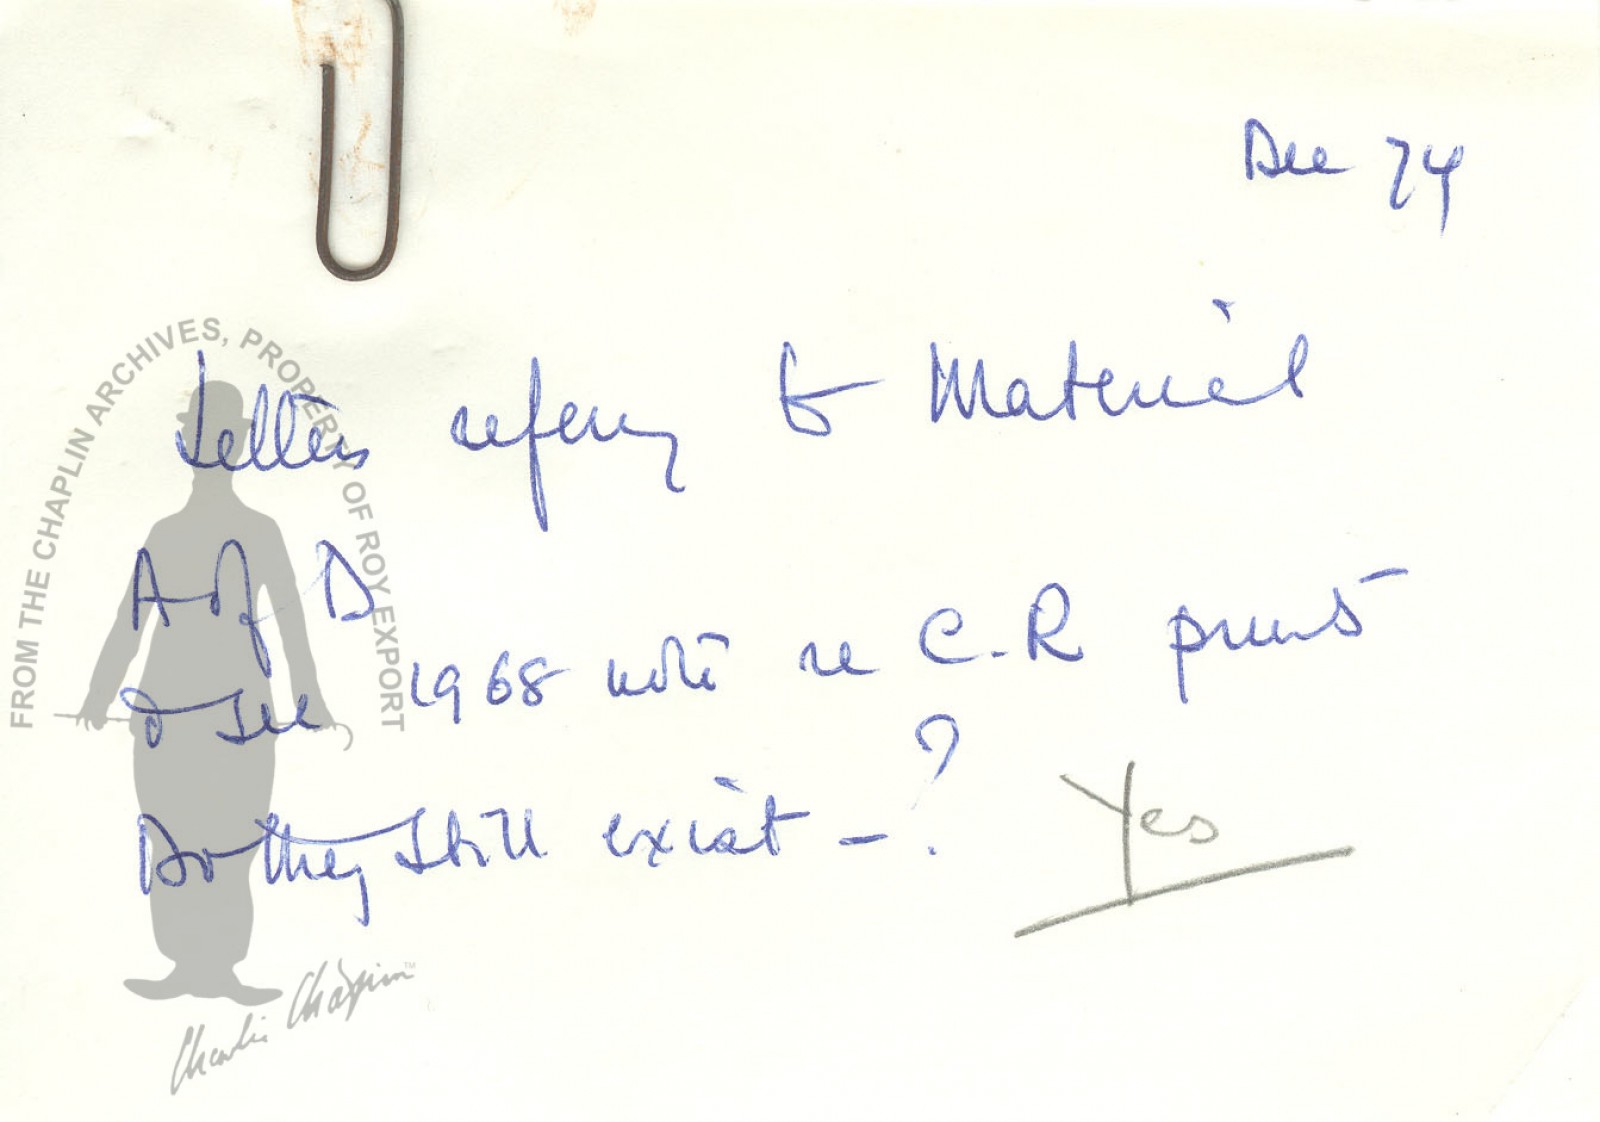 Dec 74
Letters refering to Material
A of D
& see 1968 note re C.R prints
Do they still exist - ?
Yes
FROM THE CHAPLIN ARCHIVES, PROPERTY OF ROY EXPORT
Charlie Chaplin™